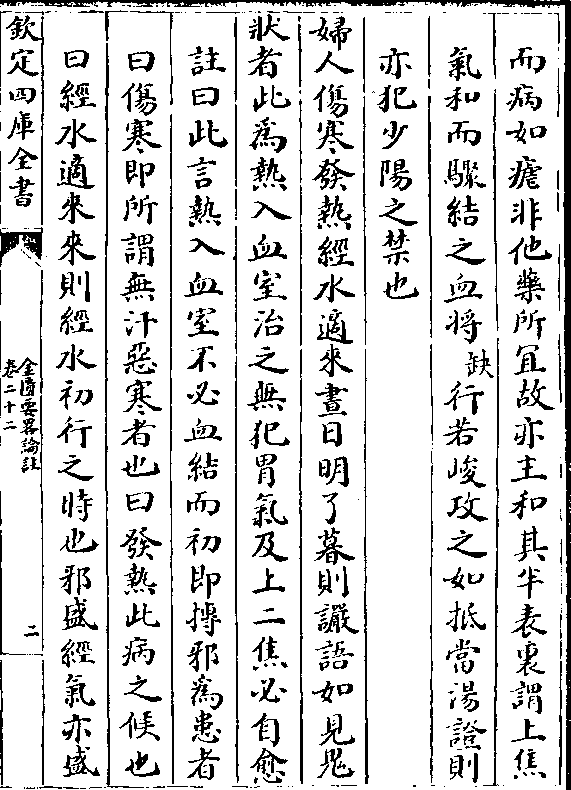 而病如瘧非他藥所宜故亦主和其半表裏謂上焦
氣和而驟結之血將缺行若峻攻之如抵當湯證則
亦犯少陽之禁也
婦人傷寒發熱經水適來晝日明了暮則讝語如見鬼
狀者此為熱入血室治之無犯胃氣及上二焦必自愈
註曰此言熱入血室不必血結而初即搏邪為患者
曰傷寒即所謂無汗惡寒者也曰發熱此病之候也
曰經水適來來則經水初行之時也邪盛經氣亦盛
欽定四庫全書
金匱要畧論註
卷二十二
二